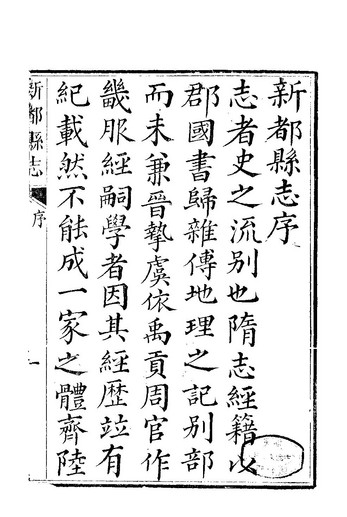 新都縣志序
志者史之流別也隋志經籍以
郡國書歸雜傳地理之記別部
而未兼晉摯虞依禹貢周官作
畿服經嗣學者因其經歷竝有
紀載然不能成一家之體齊陸
新都縣志
序
一